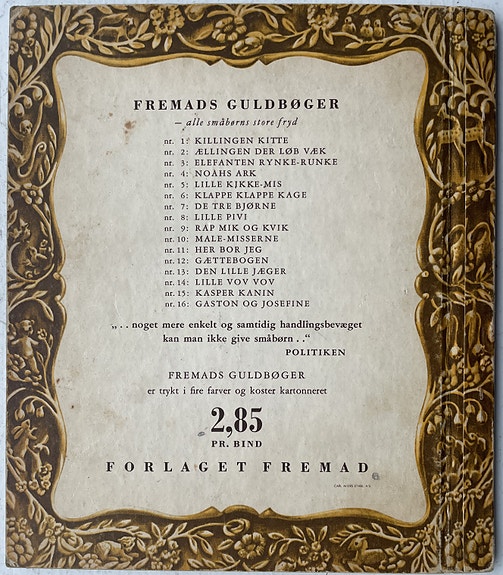 FREMADS GULDBØGER
— alle småbørns store fryd
nr. 1: KILLINGEN KITTE
nr. 2: ÆLLINGEN DER LØB VÆK
nr. 3: ELEFANTEN RYNKE-RUNKE
nr. 4: NOAHS ARK
nr. 5: LILLE KJKKE-MIS
nr. 6: KLAPPE KLAPPE KAGE
nr. 7: DE TRE BJØRNE
nr. 8: LILLE PIVI
nr. 9: RAP MIK OG KVIK
nr. 10: MALE-MISSERNE
nr. 11: HER BOR JEG
nr. 12: GÆTTEBOGEN
nr. 13: DEN LILLE JÆGER
nr. 14: LILLE VOV VOV
nr. 15: KASPER KANIN
nr. 16: GASTON OG JOSEFINE
„. . noget mere enkelt og samtidig handlingsbevæget
kan man ikke give småbørn . .“
POLITIKEN
FREMADS GULDBØGER
er trykt i fire farver og koster kartonneret
2,85
PR. BIND
FORLAGET FREMAD